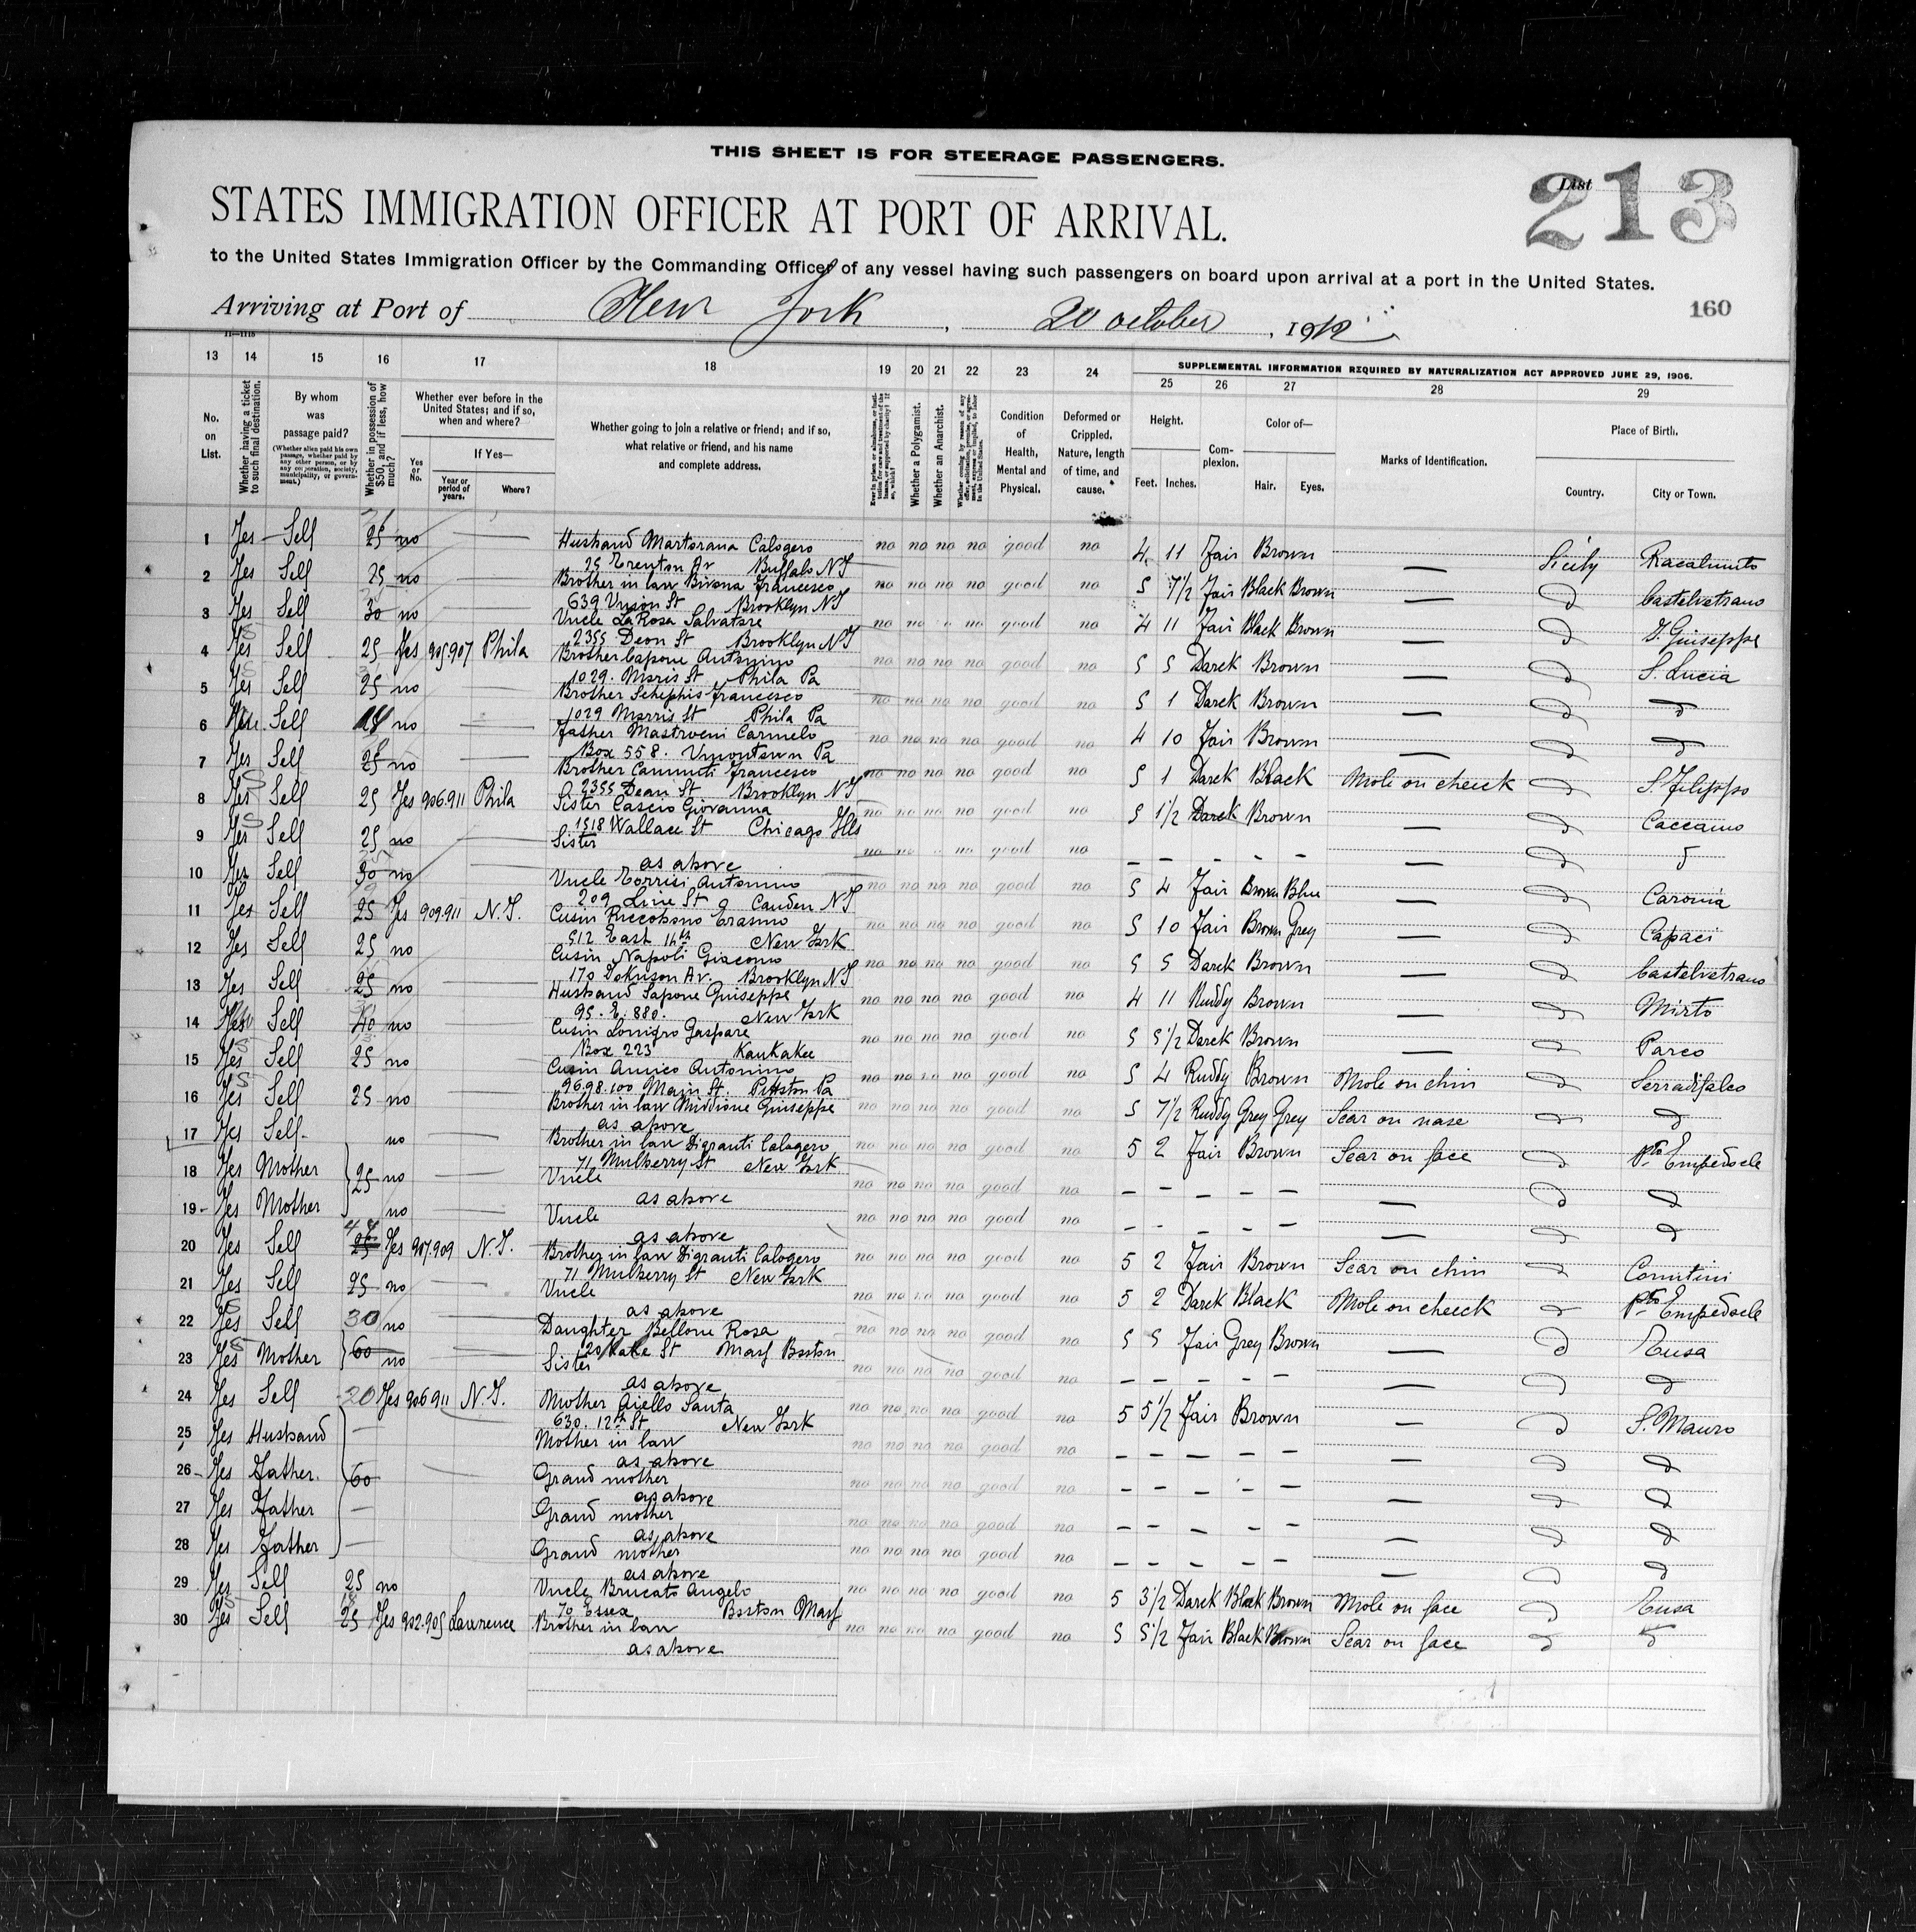 THIS SHEET IS FOR STEERAGE PASSENGERS.
STATES IMMIGRATION OFFICER AT PORT OF ARRIVAL.
List 213
to the United States Immigration Officer by the Commanding Officer of any vessel having such passengers on board upon arrival at a port in the United States.
Arriving at Port of New York, 20 october, 1912
160
13 14 15 16 17 18 19 20 21 22 23 24 SUPPLEMENTAL INFORMATION REQUIRED BY NATURALIZATION ACT APPROVED JUNE 29, 1906.
25 26 27 28 29
No. on List.
Whether having a ticket to such final destination.
By whom was passage paid?
(Whether alien paid his own passage, whether paid by any other person, or by any corporation, society, municipality, or government.)
Whether in possession of $50, and if less, how much?
Whether ever before in the United States; and if so, when and where?
Yes or No.
If Yes—
Year or period of years.
Where?
Whether going to join a relative or friend; and if so, what relative or friend, and his name and complete address.
Whether a Polygamist.
Whether an Anarchist.
Condition of Health, Mental and Physical.
Deformed or Crippled. Nature, length of time, and cause.
Height.
Feet. Inches.
Complexion.
Color of—
Hair. Eyes.
Marks of Identification.
Place of Birth.
Country. City or Town.
1 Yes Self 25 no — Husband Martorana Calogero no no no no good no 4 11 Fair Brown — Sicily Racalmuto
25 Trenton Av Buffalo NY
2 Yes Self 25 no — Brother in law Bivona Francesco no no no no good no 5 7 1/2 Fair Black Brown — d Castelvetrano
639 Union St Brooklyn NY
3 Yes Self 30 no — Uncle LaRosa Salvatore no no no no good no 4 11 Fair Black Brown — d S. Guiseppe
2355 Dean St Brooklyn NY
4 Yes Self 25 Yes 905907 Phila Brother Capone Antonino no no no no good no 5 5 Darck Brown — d S. Lucia
1029. Morris St Phila Pa
5 Yes Self 25 no — Brother Schephis Francesco no no no no good no 5 1 Darck Brown — d d
1029 Morris St Phila Pa
6 Self no — Father Mastroeni Carmelo no no no no good no 4 10 Fair Brown — d d
Box 558. Uniontown Pa
7 Yes Self 25 no — Brother Cammuti Francesco no no no no good no 5 1 Darck Black Mole on cheeck d S. Filippo
2355 Dean St Brooklyn NY
8 Yes Self 25 Yes 906.911 Phila Sister Cascio Giovanna no no no no good no 5 1 1/2 Darck Brown — d Caccamo
1518 Wallace St Chicago Ills
9 Yes Self 25 no — Sister no no no no good no — — — — — d d
as above
10 Yes Self 30 no — Uncle Torrisi Antonino no no no no good no 5 4 Fair Brown Blue — d Caronia
209 Line St Camden NY
11 Yes Self 25 Yes 909.911 N.Y. Cusin Riccobono Erasmo no no no no good no 5 10 Fair Brown Grey — d Capaci
512 East 14th New York
12 Yes Self 25 no — Cusin Napoli Giacomo no no no no good no 5 5 Darck Brown — d Castelvetrano
170 Av. Brooklyn NY
13 Yes Self 25 no — Husband Sapone Guiseppe no no no no good no 4 11 Ruddy Brown — d Mirto
95. E. 880. New York
14 Self 40 no — Cusin Lonigro Gaspare no no no no good no 5 5 1/2 Darck Brown — d Parco
Box 223 Kankakee
15 Yes Self 25 no — Cusin Amico Antonino no no no no good no 5 4 Ruddy Brown Mole on chin d Serradifalco
96.98.100 Main St. Pittston Pa
16 Yes Self 25 no — Brother in law Middione Guiseppe no no no no good no 5 7 1/2 Ruddy Grey Grey Scar on nase d d
as above
17 Yes Self no — Brother in law Digranti Calogero no no no no good no 5 2 Fair Brown Scar on face d Pto Empedocle
71 Mulberry St New York
18 Yes Mother 25 no — Uncle no no no no good no — — — — — — d d
as above
19 Yes Mother no — Uncle no no no no good no — — — — — — d d
as above
20 Yes Self 25 Yes 907.909 N.Y. Brother in law Digranti Calogero no no no no good no 5 2 Fair Brown Scar on chin d Comitini
71 Mulberry St New York
21 Yes Self 25 no — Uncle no no no no good no 5 2 Darck Black Mole on cheeck d Pto Empedocle
as above
22 Yes Self 30 no — Daughter Bellone Rosa no no no no good no 5 5 Fair Grey Brown — d Tusa
St Mass Boston
23 Yes Mother 60 no — Sister no no no no good no — — — — — — d d
as above
24 Yes Self 20 Yes 906911 N.Y. Mother Aiello Santa no no no no good no 5 5 1/2 Fair Brown — d S. Mauro
630. 12th St New York
25 Yes Husband — Mother in law no no no no good no — — — — — — d d
as above
26 Yes Father 60 Grand mother no no no no good no — — — — — — d d
as above
27 Yes Father — Grand mother no no no no good no — — — — — — d d
as above
28 Yes Father — Grand mother no no no no good no — — — — — — d d
as above
29 Yes Self 25 no Uncle Brucato Angelo no no no no good no 5 3 1/2 Darck Black Brown Mole on face d Tusa
70 Essex Boston Mass
30 Yes Self 25 Yes 902.905 Lawrence Brother in law no no no no good no 5 5 1/2 Fair Black Brown Scar on face d d
as above